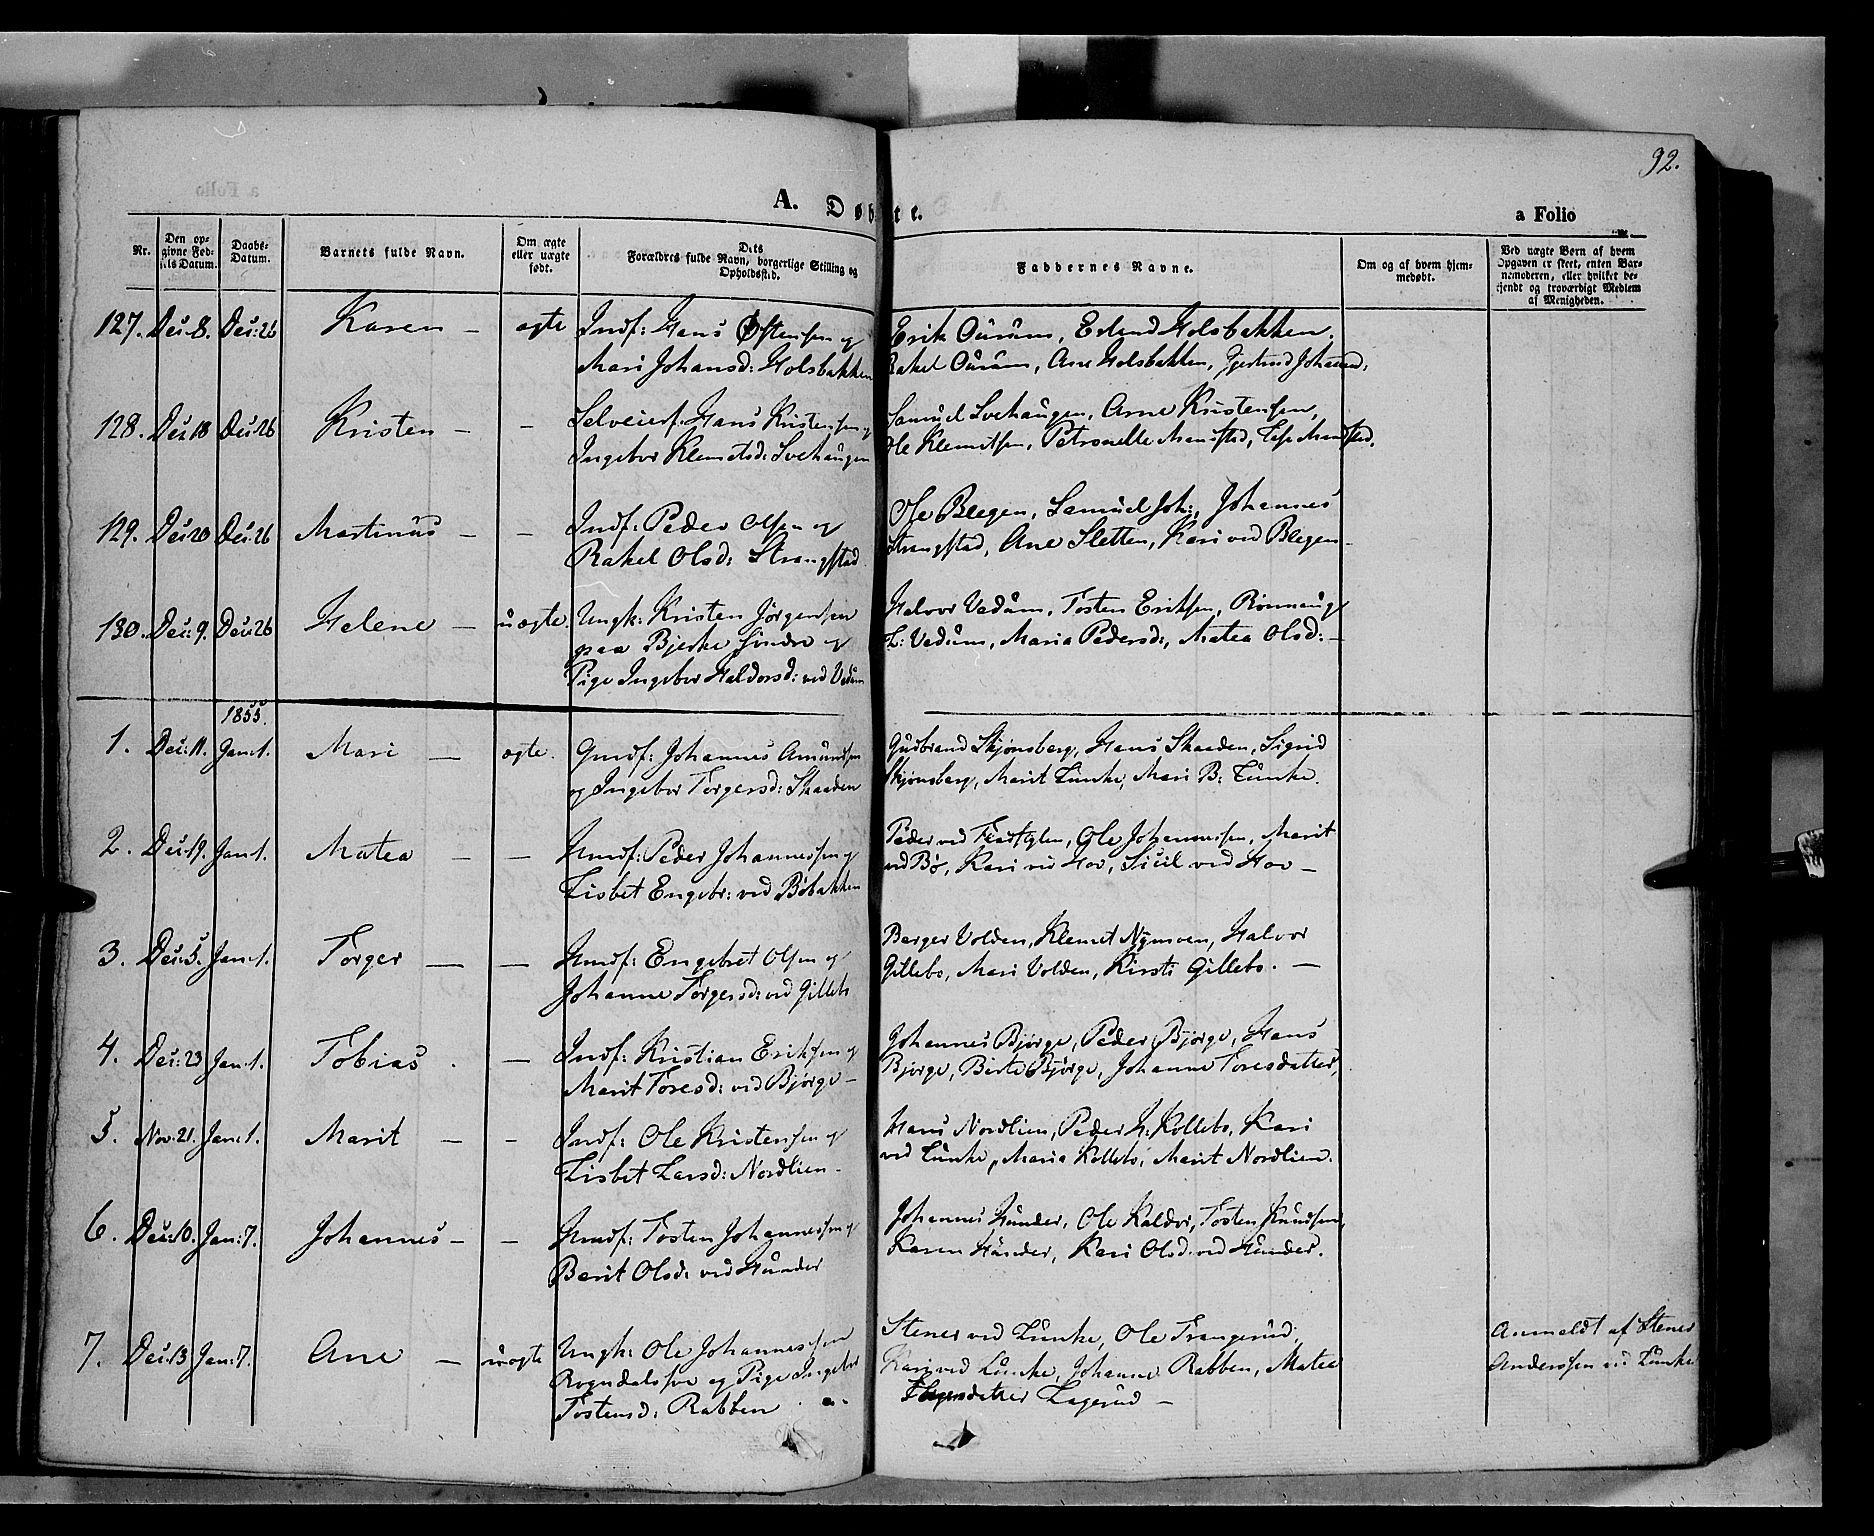 92.
A. Døbte.
a Folio
Nr.
Den opgivne Fødsels Datum.
Daabs-Datum.
Barnets fulde Navn.
Om ægte eller uægte født.
Dets Forældres fulde Navn, borgerlige Stilling og Opholdssted.
Faddernes Navne.
Om og af hvem hjemmedøbt.
Ved uægte Børn af hvem Opgaven er skeet, enten Barnemoderen, eller hvilket bekjendt og troværdigt Medlem af Menigheden.
127. Dec: 8. Dec: 26 Karen — ægte Indf: Hans Østensen og Erik Ourum, Erland Holsbakken,
Mari Johansd: Holsbakken Rakel Ourum, Ane Holsbakken, Gjertrud Johansd.
128. Dec 18 Dec: 26 Kristen — — Selveierf. Hans Kristensen og Samuel Svehaugen, Arne Kristensen,
Ingebor Klemetsd: Svehaugen Ole Klemetsen, Petronelle
129. Dec 20 Dec: 26 Martinus — — Indf: Peder Olsen og Ole Blegen, Samuel Joh:, Johannes
Rakel Olsd: Strangstad Strangstad, Ane Sletten, Kari ved Blegen —
130. Dec: 9. Dec: 26 Helene — uægte. Ungk: Kristen Jörgensen Halvor Vadum, Tosten Eriksen, Rönnaug
paa Bjerke Söndre og L: Vadum, Maria Pedersd:, Matea Olsd: —
Pige Ingebor Haldorsd: ved Vadum
1855.
1. Dec: 11. Jan: 1. Mari — ægte. Gmdf: Johannes Amundsen Gudbrand Skjønsberg, Hans Skaaden, Sigrid
og Ingebor Torgersd: Skaaden Skjønsberg, Marit Lunke, Mari B: Lunke.
2. Dec: 19. Jan: 1. Matea — — Hmdf: Peder Johannessen og Peder ved Ole Johannessen, Marit
Lisbet Engebr: ved Böbakken ved Bø, Kari ved Hov, Sicil ved Hov —
3. Dec: 5. Jan: 1. Torger — — Hmdf: Engebret Olsen og Berger Volden, Klemet Nymoen, Halvor
Johanne Torgersd: ved Gillebo Gillebo, Mari Volden, Kirsti Gillebo. —
4. Dec: 23 Jan: 1. Tobias . — Indf: Kristian Eriksen og Johannes Bjørge, Peder Bjørge, Hans
Marit Toresd: ved Bjørge — Bjørge, Birte Bjørge, Johanne Toresdatter,
5. Nov: 21. Jan: 1. Marit — — Indf: Ole Kristensen og Hans Nordlien, Peder H: Kollebo, Kari
Lisbet Larsd: Nordlien — ved Lunke, Maria Kollebo, Marit Nordlien.
6. Dec: 10. Jan: 7. Johannes — — Hmdf: Tosten Johannessen og Johannes Hunder, Ole Kaldor, Tosten Knudsen,
Berit Olsd: ved Hunder Karen Hunder, Kari Olsd: ved Hunder.
7. Dec: 13 Jan: 7. Ane — uægte Ungk: Ole Johannessen Stener ved Lunke, Ole Trangerud, Anmeldt af Stener
og Pige Ingebor Kari ved Lunke, Johanne Rabben, Matea Anderssen ved Lunke
Tostensd: Rabben Lagerud —